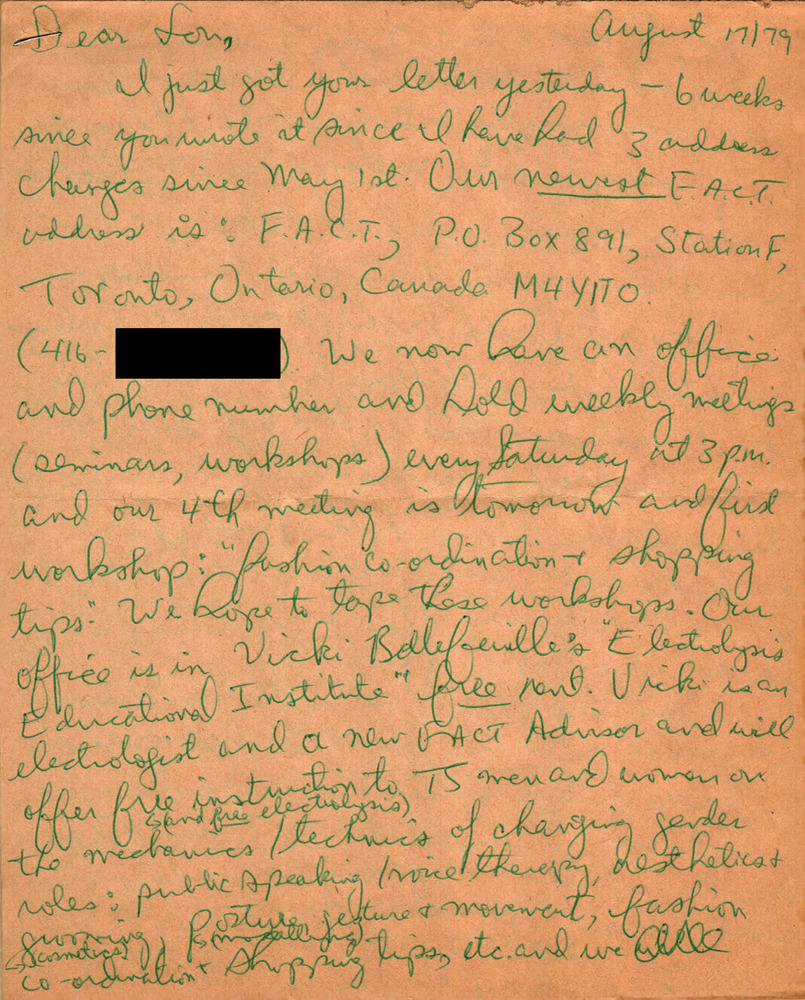 Dear Lou,
August 17/79
I just got your letter yesterday – 6 weeks
since you wrote it since I have had 3 address
changes since May 1st. Our newest F.A.C.T.
address is: F.A.C.T., P.O. Box 891, Station F,
Toronto, Ontario, Canada M4Y1T0.
(416- ). We now have an office
and phone number and hold weekly meetings
(seminars, workshops) every Saturday at 3 p.m.
and our 4th meeting is tomorrow and first
workshop: "fashion co-ordination + shopping
tips." We hope to tape these workshops. Our
office is in Vicki Bellefeuille's "Electrolysis
Educational Institute" free rent. Vicki is an
electrologist and a new FACT Advisor and will
offer free instruction to TS men and women on
(and free electrolysis)
the mechanics / technics of changing gender
roles: public speaking / voice therapy, aesthetics +
grooming, posture, gesture + movement, fashion
(cosmetics)
co-ordination + shopping tips, etc. and we